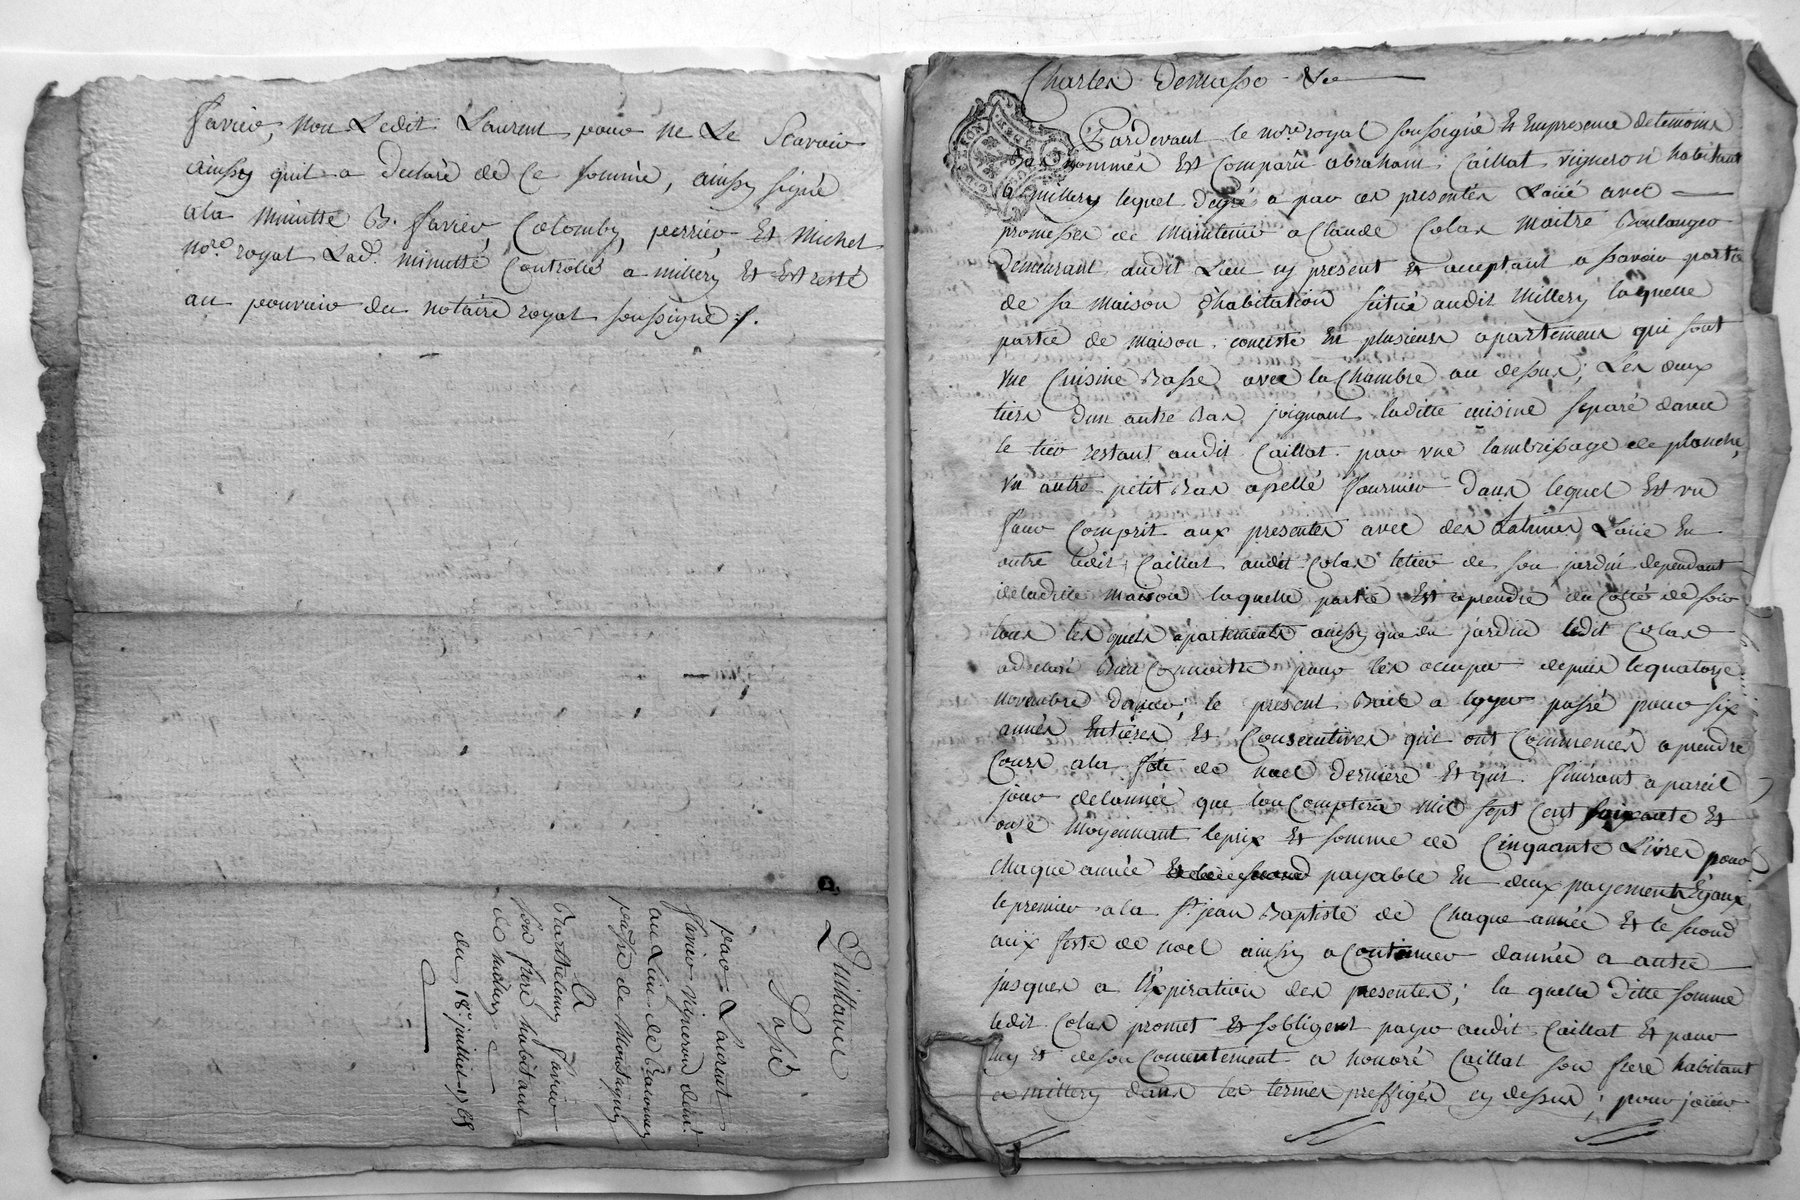 favier, non Ledit Laurent pour ne Le Scavoir
ainsy quil a declaré de ce sommé, ainsy signé
ala minutte B. favier, Colomby, perrier, Et Michel
nore. royal Lad. minutte Controllé a millery Et Est resté
au pouvoir du notaire royal soussigné ./.
Quittance
Passé
par Laurent
favier vigneron dem.
au Lieu de
paroisse de Montagny
a
Barthelemy favier
son frere habitant
de
du 18e. juillet 1765
Charles Demasso &c
Pardevant le nore. royal soussigné Et Empresence detemoins
Bas nommés Est Comparû abraham Caillat vigneron habitant
a millery lequel degré a par ces presentes Loüé avec
promesses de maintenir a Claude Colas maitre Boulanger
Demeurant audit Lieu cy present Et aceptant a scavoir partie
de sa maison d'habitation scitué audit Millery laquelle
partie de maison conciste En plusieurs apartemens qui sont
vne Cuisine Basse avec la Chambre au dessus; Les deux
tiers d'un autre Bas joignant laditte cuisine separé davec
le tier restant audit Caillat par vne lambrissage de planche,
vn autre petit Bas apellé fournier dans lequel Est vn
four Comprit aux presentes avec des Latrines Loüe En
outre ledit Caillat audit Colas letier de son jardin dependant
deladite maison laquelle partie Est aprendre du Cotté de soir
tous les quels apartements ainsy que du jardin ledit Colas
a declaré Bien Connoitre pour les occuper depuis lequatorze
novembre dernier; le present Bail a loyer passé pour six
années Entieres Et Consecutives qui ont Commencés aprendre
Cours ala fête de noel derniere Et qui finiront apareil
jour delannée que lon Comptera mil sept Cent soixante Et
onze moyennant leprix Et somme de Cinquante Livres pour
chaque année payable En deux payements Egaux
lepremier ala St. jean Baptiste de Chaque année Et le second
aux feste de noel ainsy a Continuer dannée a autre
jusques a l'Expiration des presentes; la quelle ditte somme
ledit Colas promet Et sobligent payer audit Caillat Et pour
luy Et deson Consentement a honoré Caillat son frere habitant
a millery dans les termes preffigés cy dessus; pour joüir